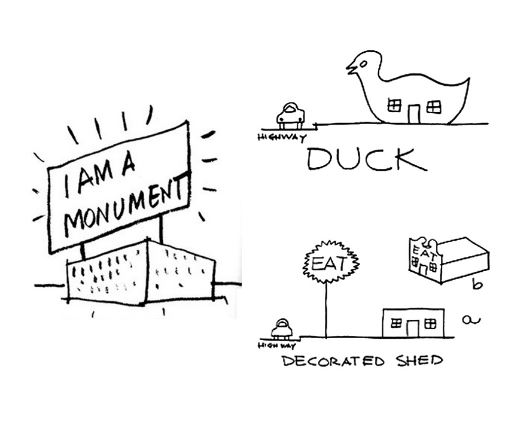 I AM A
MONUMENT
HIGHWAY
DUCK
EAT
EAT
b
a
HIGHWAY
DECORATED SHED